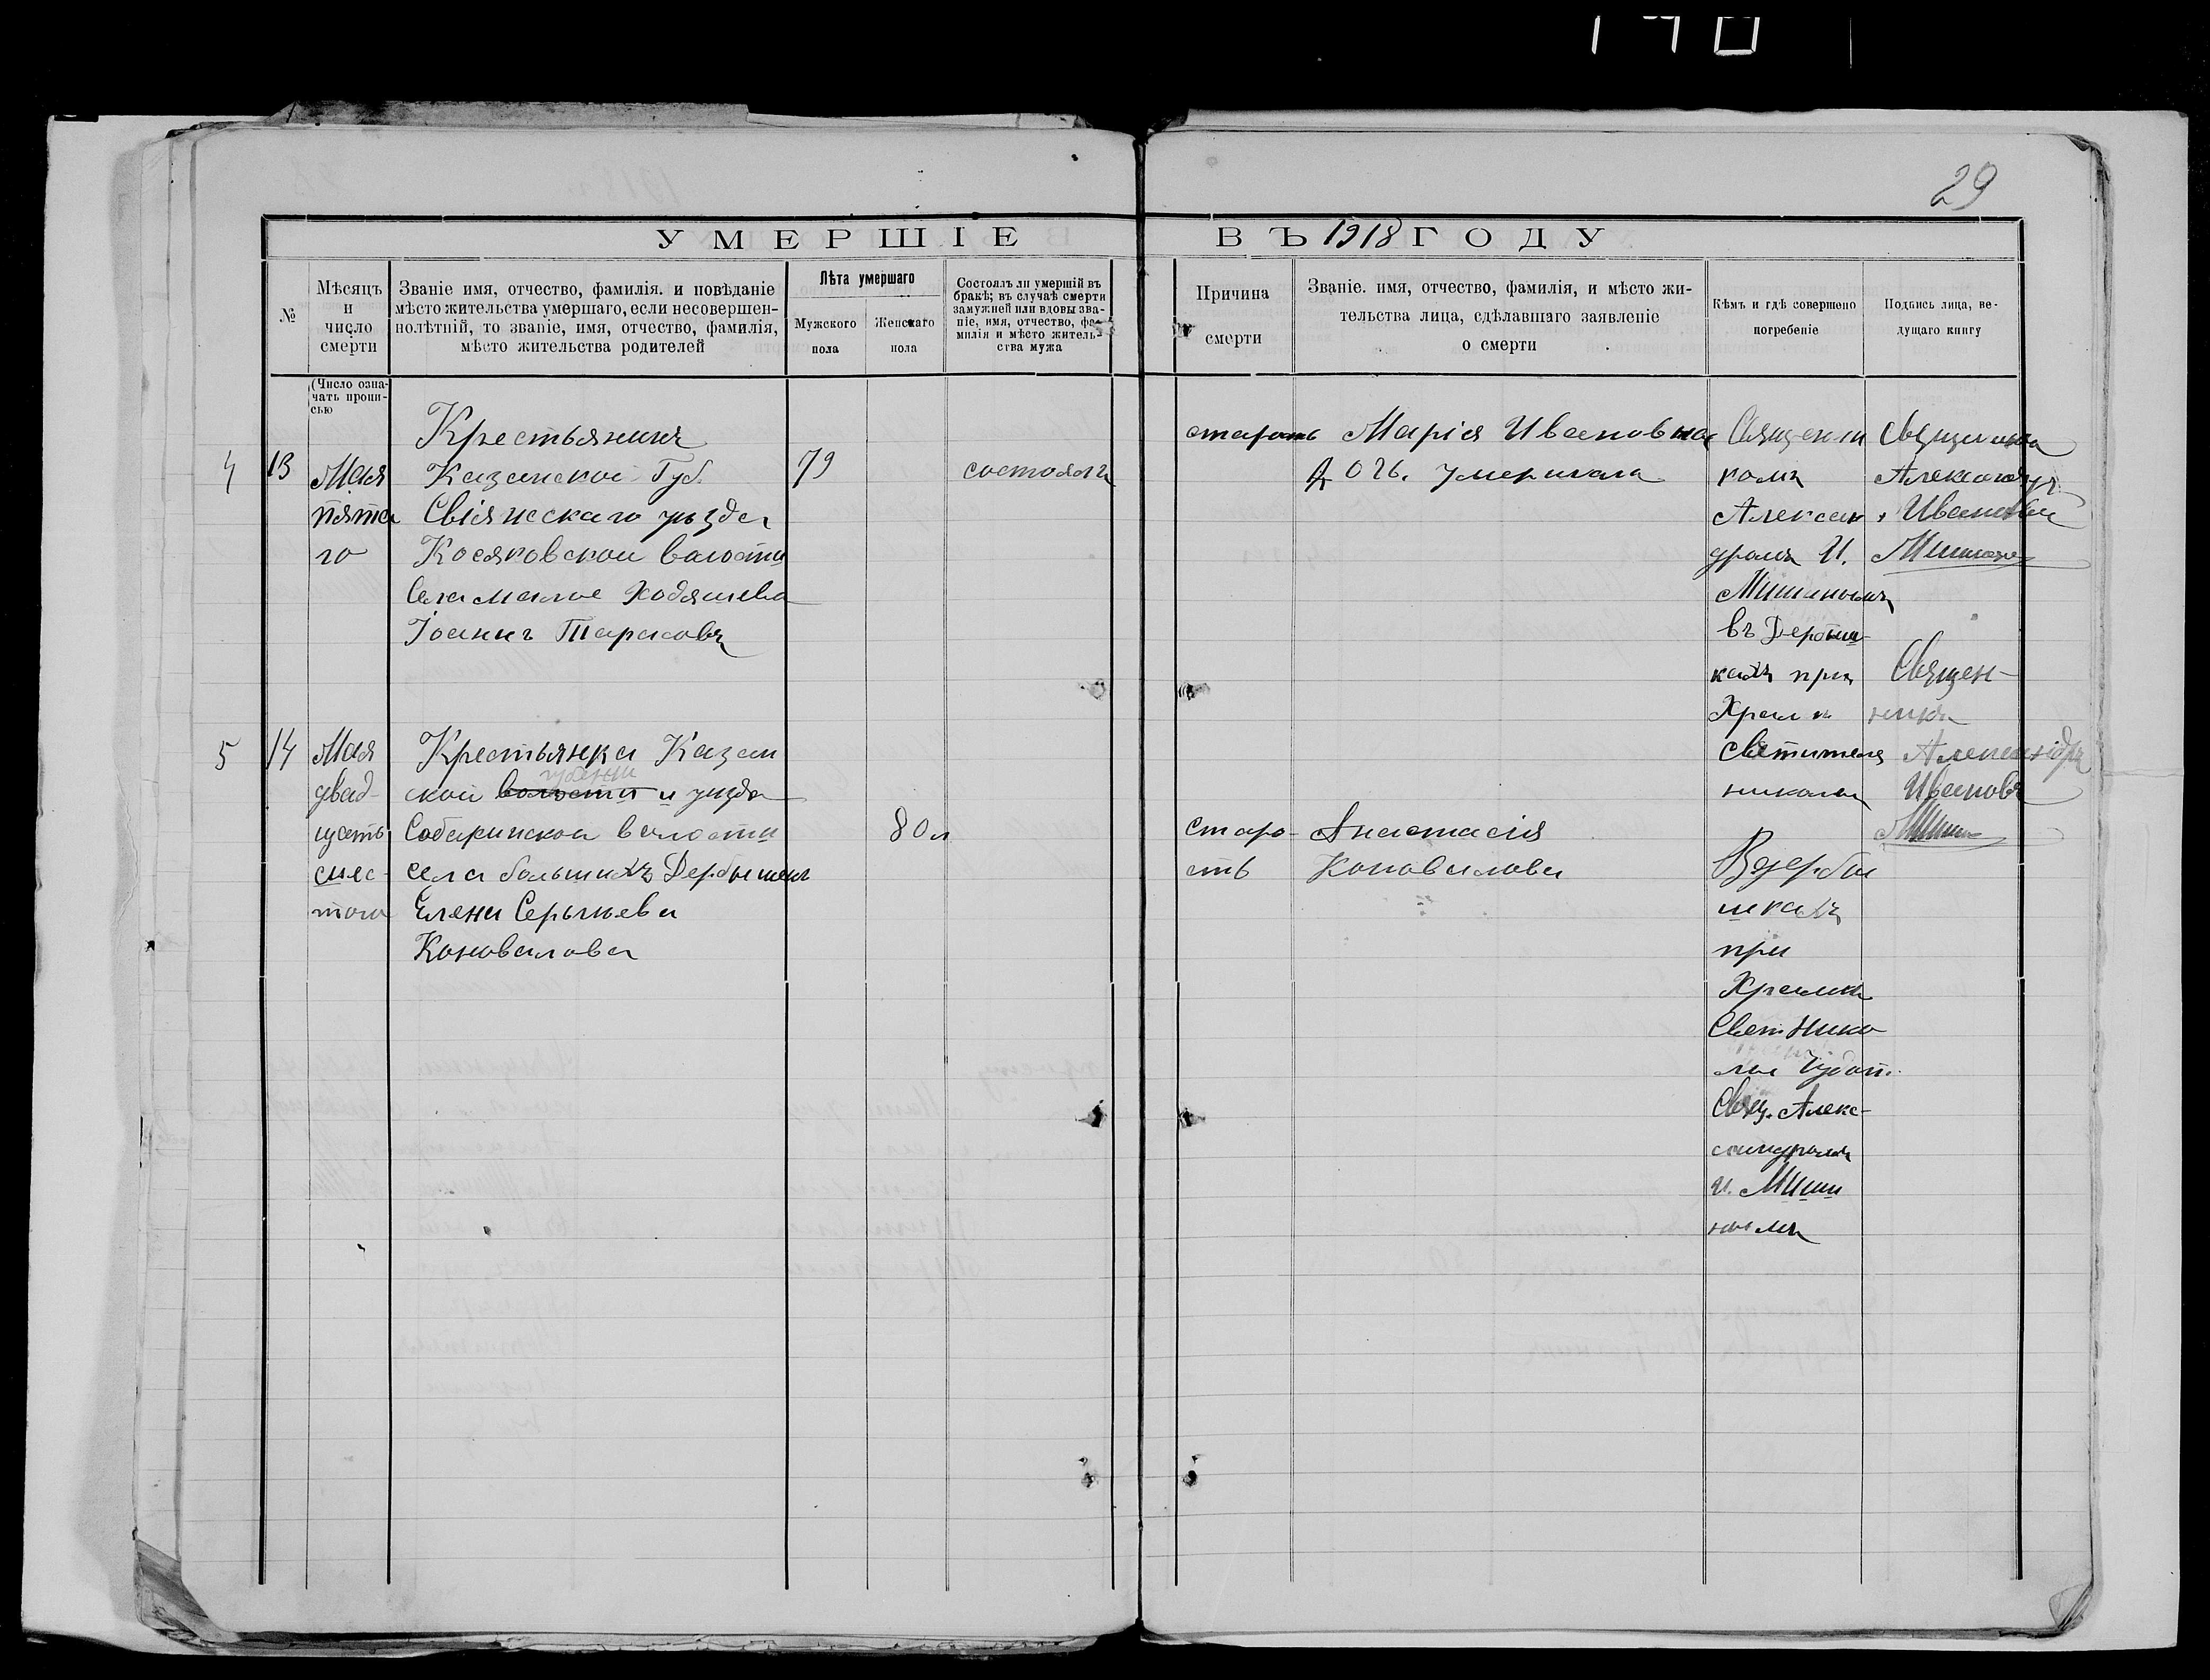 29
УМЕРШІЕ ВЪ 1918 ГОДУ
№
Мѣсяцъ
и
число
смерти
Званіе имя, отчество, фамилія. и повѣданіе
мѣсто жительства умершаго, если несовершен-
нолѣтній, то званіе, имя, отчество, фамилія,
мѣсто жительства родителей
Лѣта умершаго
Мужского
пола
Женскаго
пола
Состоялъ ли умершій въ
бракѣ; въ случаѣ смерти
замужней или вдовы зва-
ніе, имя, отчество, фа-
милія и мѣсто житель-
ства мужа
Причина
смерти
Званіе. имя, отчество, фамилія, и мѣсто жи-
тельства лица, сдѣлавшаго заявленіе
о смерти
Кѣмъ и гдѣ совершено
погребеніе
Подпись лица, ве-
дущаго книгу
(Число озна-
чать пропи-
сью
4 13
Мая
пята
го
Крестьянинъ
Казанской Губ.
Свіяжскаго уѣзда
Косяковской валости
Села малое Ходяшева
Іоаннъ Тарасовъ
79
состоялъ
старость
Марія Ивановна
дочь умершаго
Священни
комъ
Алексан
дромъ И.
Мишинымъ
въ Дербыш
кахъ при
Храмѣ
светителя
николая
Священника
Александръ
Иванов
Мишин
5 14
Мая
двад-
цать
шес-
того
Крестьянка Казан
ской волости и уѣзда
губерни
Собакинской валости
села большихъ Дербышекъ
Елена Сергѣева
Коновалова
80 л
старо-
сть
Анастасія
Коновалова
В дербы
шкахъ
при
Храмѣ
Свет Нико
лая Чудот.
Свящ. Алекс-
сандромъ
И. Миши
нымъ
Священ-
никъ
Александръ
Ивановъ
Мишин